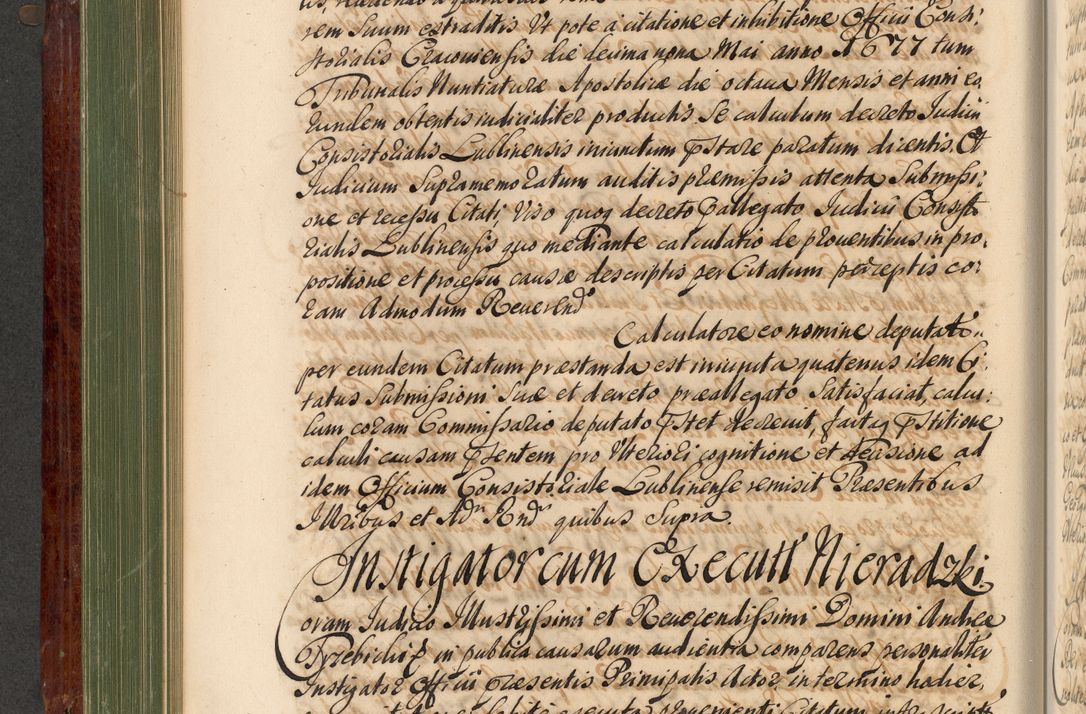 rem suum extraditis Ut pote a citatione et inhibitione Officii Consi:
storialis Cracouiensis die decima nona Mai anno 1677 tum
Tribunalis Nuntiaturæ Apostolicæ die octaua Mensis et anni eo,
rundem obtentis iudicialiter productis se calculum decreto Iudicii
Consistorialis Lublinensis iniunctum pstare paratum dicentis. Et
Iudicium supramemoratum auditis præmissis attenta submissi:
one et recessu Citati, Viso quoq decreto pallegato Iudicii Consisto
rialis Lublinensis quo mediante calculatio de prouentibus in pro,
positione et processu causæ descriptis per Citatum perceptis co:
ram Admodum Reuerend
Calculatore eo nomine deputato
per eundem Citatum præstanda est iniuncta quatenus idem Ci:
tatus submissioni suæ et decreto præallegato satisfaciat, calcu:
lum coram Commissario deputato pstet decreuit, factaq pstitione
calculi causam psentem pro Ulteriori cognitione et decisione ad
idem Officium Consistoriale Lublinense remisit Præsentibus
Illribus et Adm Rndis quibus supra.
Instigator cum Executt Nieradzki
Coram Iudicio Illustrissimi et Reuerendissimi Domini Andreæ
Trzebicki in publica causarum audientia comparens personaliter
Instigator Officii præsentis Principalis Actor in termino hodier,